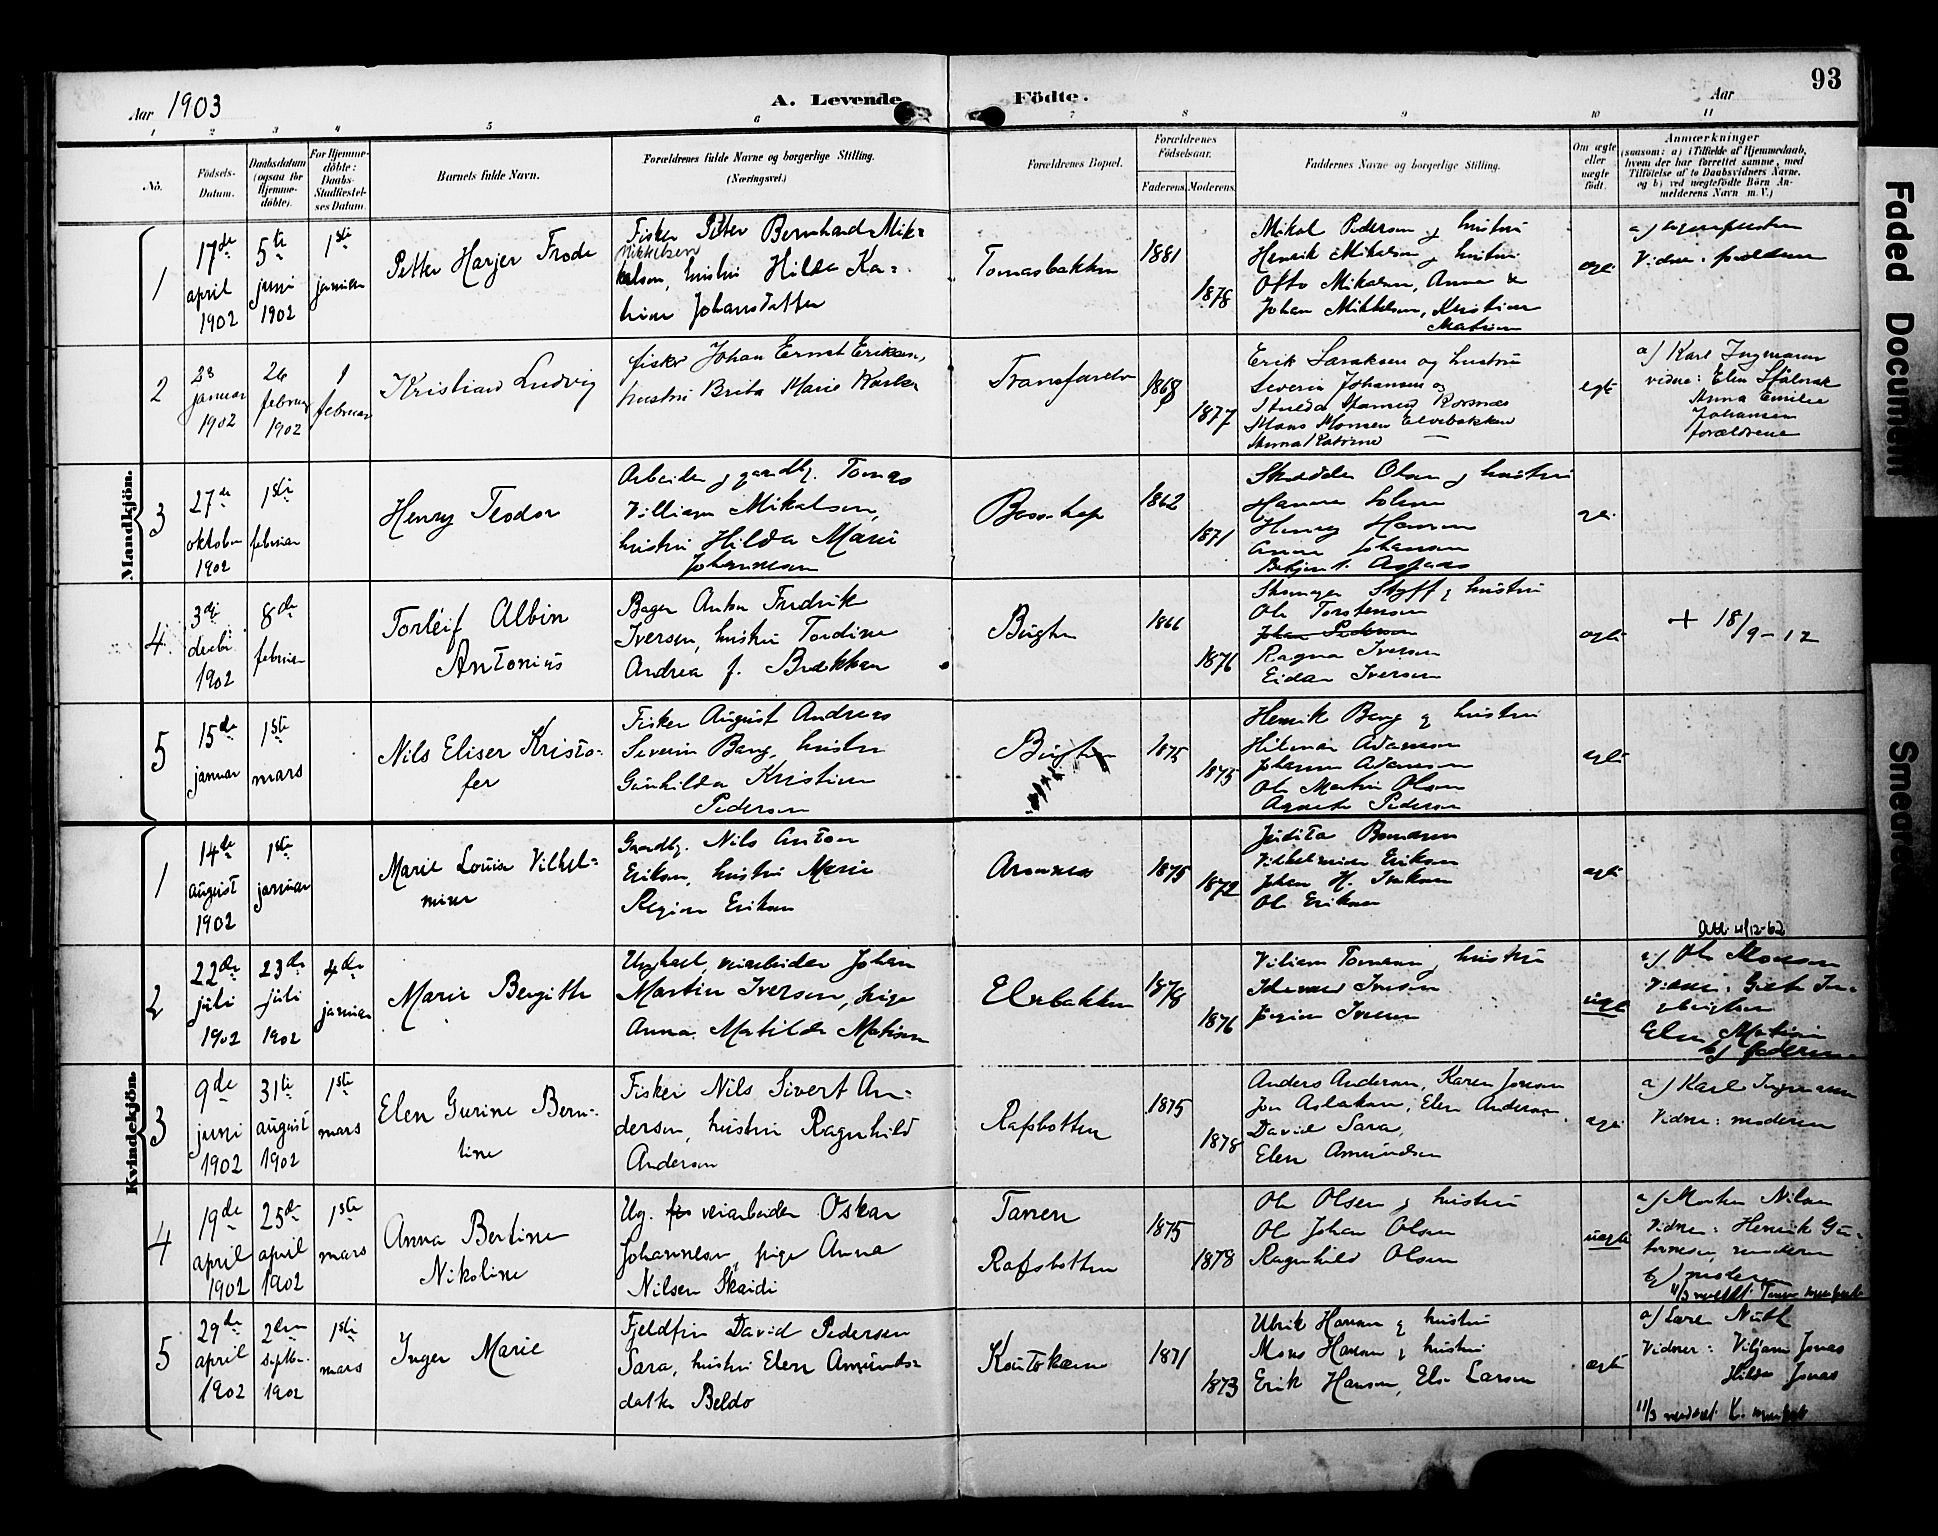 93
Aar 1903
A. Levende Födte.
Aar
1 2 3 4 5 6 7 8 9 10 11
No.
Födsels-Datum.
Daabsdatum (ogsaa for Hjemme-döbte).
For Hjemme-döbte: Daabs-Stadfæstel-ses Datum.
Barnets fulde Navn.
Forældrenes fulde Navne og borgerlige Stilling. (Næringsvei.)
Forældrenes Bopæl.
Forældrenes Födselsaar.
Faderens. Moderens.
Faddernes Navne og borgerlige Stilling.
Om ægte eller uægte födt.
Anmærkninger
(saasom: a) i Tilfælde af Hjemmedaab, hvem der har forrettet samme, med Tilföielse af to Daabsvidners Navne, og b) ved uægtefödte Börn An-melderens Navn m. V.)
Mandkjön.
1
17de april 1902
5te juni 1902
1ste januar
Petter Harjer Frode
Fisker Peter Bernhard Mik-
Mikkelsen
kelsen, hustru Hilda Ka-
trine Johansdatter
Tomasbakken
1881
1878
Mikal Pedersen og hustru
Henrik Mikalsen og hustru
Otto Mikalsen, Anna
Johan Mikkelsen, Kristian
ægte
a)
Vidne: forældrene
2
23 januar 1902
26 februar 1902
1 februar
Kristian Ludvig
fisker Johan Ernst Eriksen,
hustru Brita Marie Karls
Transfarelv
1868
1877
Erik Saraksen og hustru
Severin Johansen og
Korsnes
Mons Monsen Elvebakken
Anna Katrine —
egte
a) Karl Ingmarsen
vidne: Elen
Anna Emilie
Johansen
forældrene
3
27de oktober 1902
1ste februar
Henry Teodor
Arbeider og gaardbr. Tomas
Villiam Mikalsen,
hustru Hilda Marie
Johannesen
Bossekop
1862
1871
Olsen og hustru
Hanna
Henry Hansen
Anna Johansen
4
3die decbr. 1902
8de februar
Torleif Albin
Antonius
Bager Anton Fredrik
Iversen, hustru Tordine
Andrea f. Brækkan
Bugten
1866
1876
og hustru
Ole Torstensen
Johan Pedersen
Ragna Iversen
Eidar Iversen
ægte
+ 18/9-12
5
15de januar
1ste mars
Nils Eliser Kristo-
fer
Fisker August Andreas
Severin Bang, hustru
Gunhilda Kristine
Pedersen
Bugten
1875
1875
Henrik Bang og hustru
Hilmar Adamsen
Johanna Adamsen
Ole Martin Olsen
Pedersen
ægte
Kvindekjön.
1
14de august 1902
1ste januar
Marie Lovise Vilhel-
mine
Gaardbr. Nils Anton
Eriksen, hustru Marie
Regine Eriksen
Aronnes
1875
1872
Judita
Vilhelmine Eriksen
Johan H.
Ole Eriksen
ægte
2
22de juli 1902
23de juli 1902
4de januar
Marie Bergitte
Ungkarl, veiarbeider Johan
Martin Iversen, pige
Anna Matilde Mathisen
Elvebakken
1878
1876
Viliam og hustru
Iversen
Iversen
uegte
4/12-62
a) Ole Monsen
Vidne:
Elen
b) faderen
3
9de juni 1902
31te august 1902
1ste mars
Elen Gurine Bern-
tine
Fisker Nils Sivert An-
dersen, hustru Ragnhild
Andersen
Rafsbotten
1875
1878
Anders Andersen, Karen Jonsen
Jon Aslaksen, Elen Andersen
David Sara,
Elen Amundsen
ægte
a) Karl Ingmarsen
Vidne: moderen
4
19de april 1902
25de april 1902
1ste mars
Anna Bertine
Nikoline
Ug. veiarbeider Oskar
Johannesen, pige Anna
Nilsen Skaidi
Tanen
Rafsbotten
1875
1878
Ole Olsen og hustru
Ole Johan Olsen
Ragnhild Olsen
uegte
a) Morten Nilsen
Vidne: Henrik
moderen
b) moderen
11/3 meddelt Tanen
5
29de april 1902
2den septbr. 1902
1ste mars
Inger Marie
Fjeldfin David Pedersen
Sara, hustru Elen Amunds-
datter Beldo
Koutokæino
1871
1873
Ulrik Hansen og hustru
Mons Hansen og hustru
Erik Hansen, Els Larsen
ægte
a) Lars
Vidner: Viljam Jonas
Hilda Jonas
11/3 meddelt K.
Faded Document
Smeared